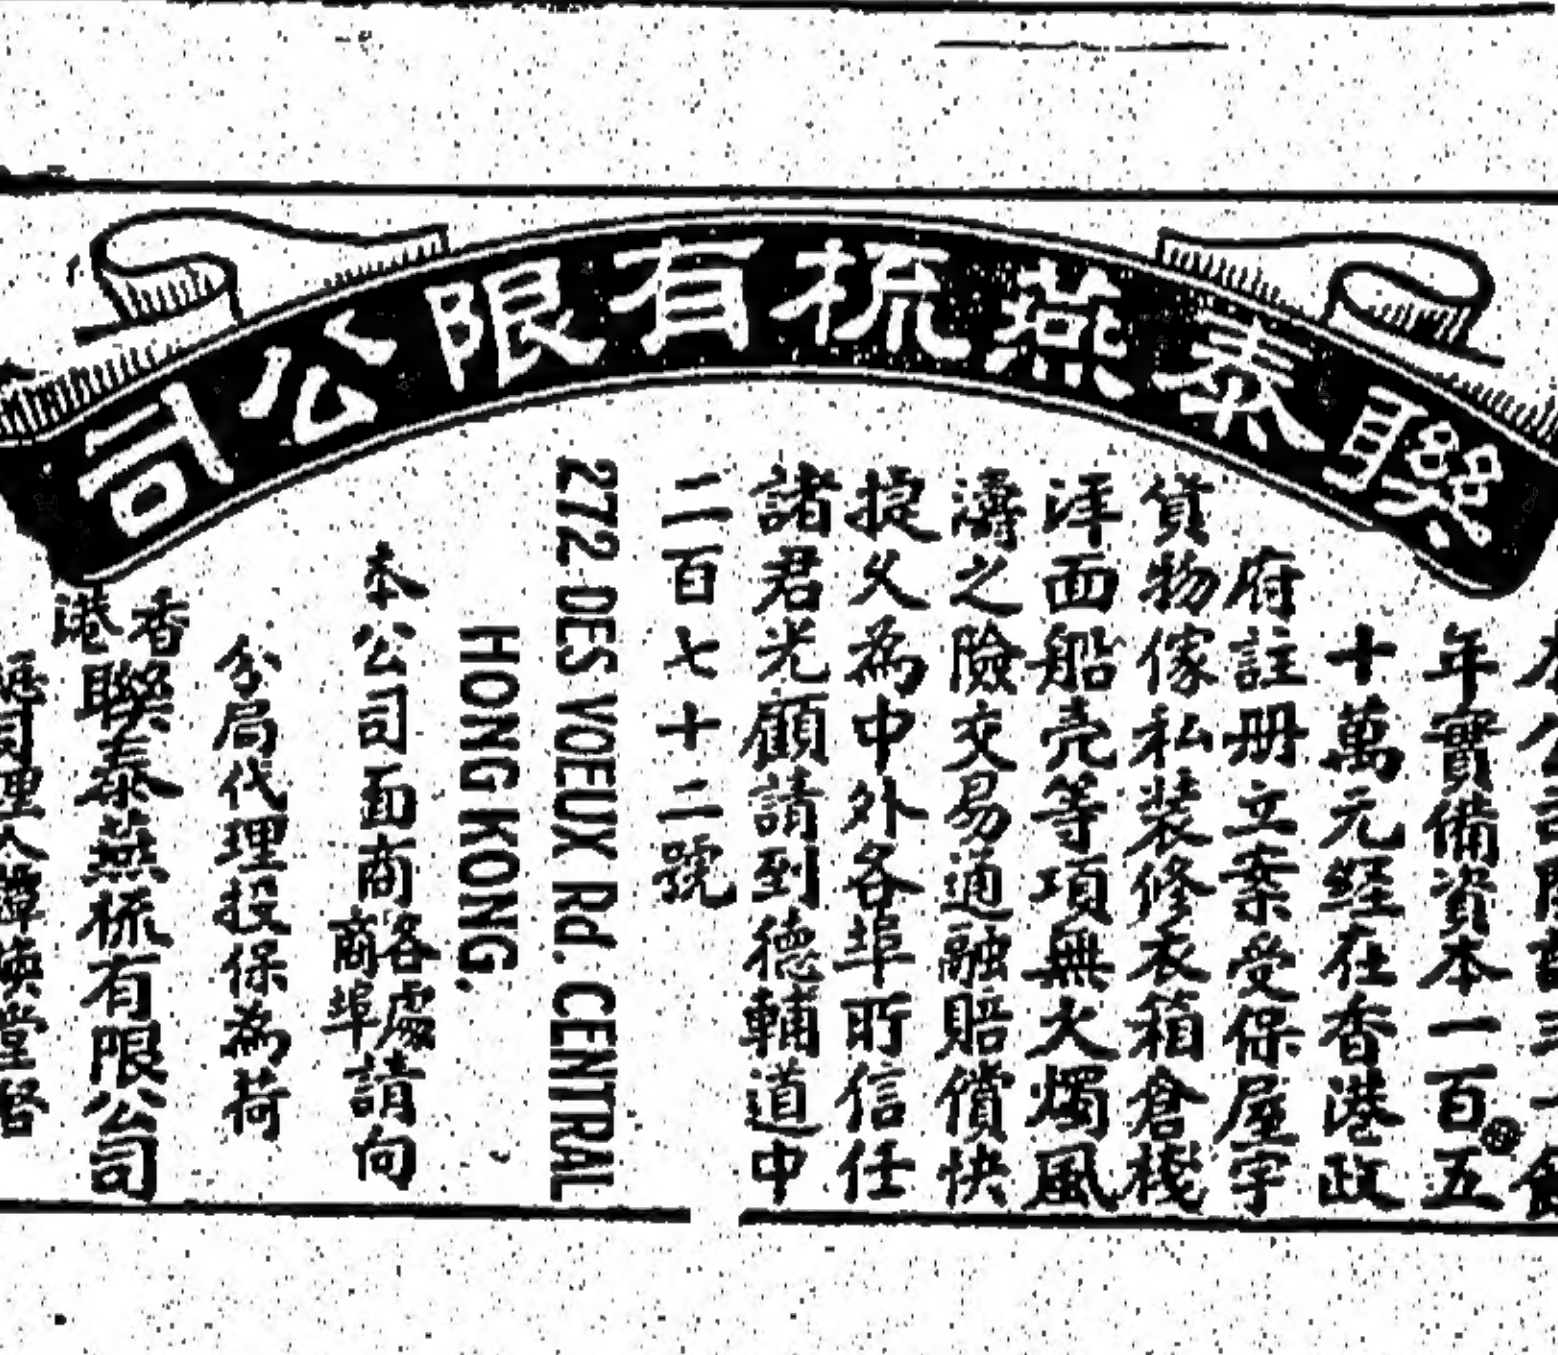 聯泰燕梳有限公司
本公司開
年實備資本一百五
十萬元經在香港政
府註册立案受保屋宇
貨物傢私裝修衣箱倉棧
洋面船壳等項無火燭風
濤之險交易通融賠償快
捷久為中外各埠所信任
諸君光顧請到德輔道中
二百七十二號
272 DES VOEUX Rd. CENTRAL
HONG KONG.
本公司面商各處商埠請向
分局代理投保為荷
香港聯泰燕梳有限公司
司理人譚煥堂啓